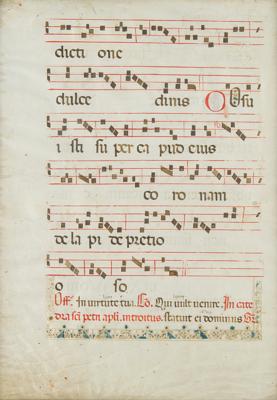 dicti one
dulce dinis Posu
i sti su per ca pud eius
co ro nam
de la pi de pretio
o so
Off. In virtute tua. Co. Qui vult venire. In cate
dra sci petri apli. introitus. Statuit ei dominus